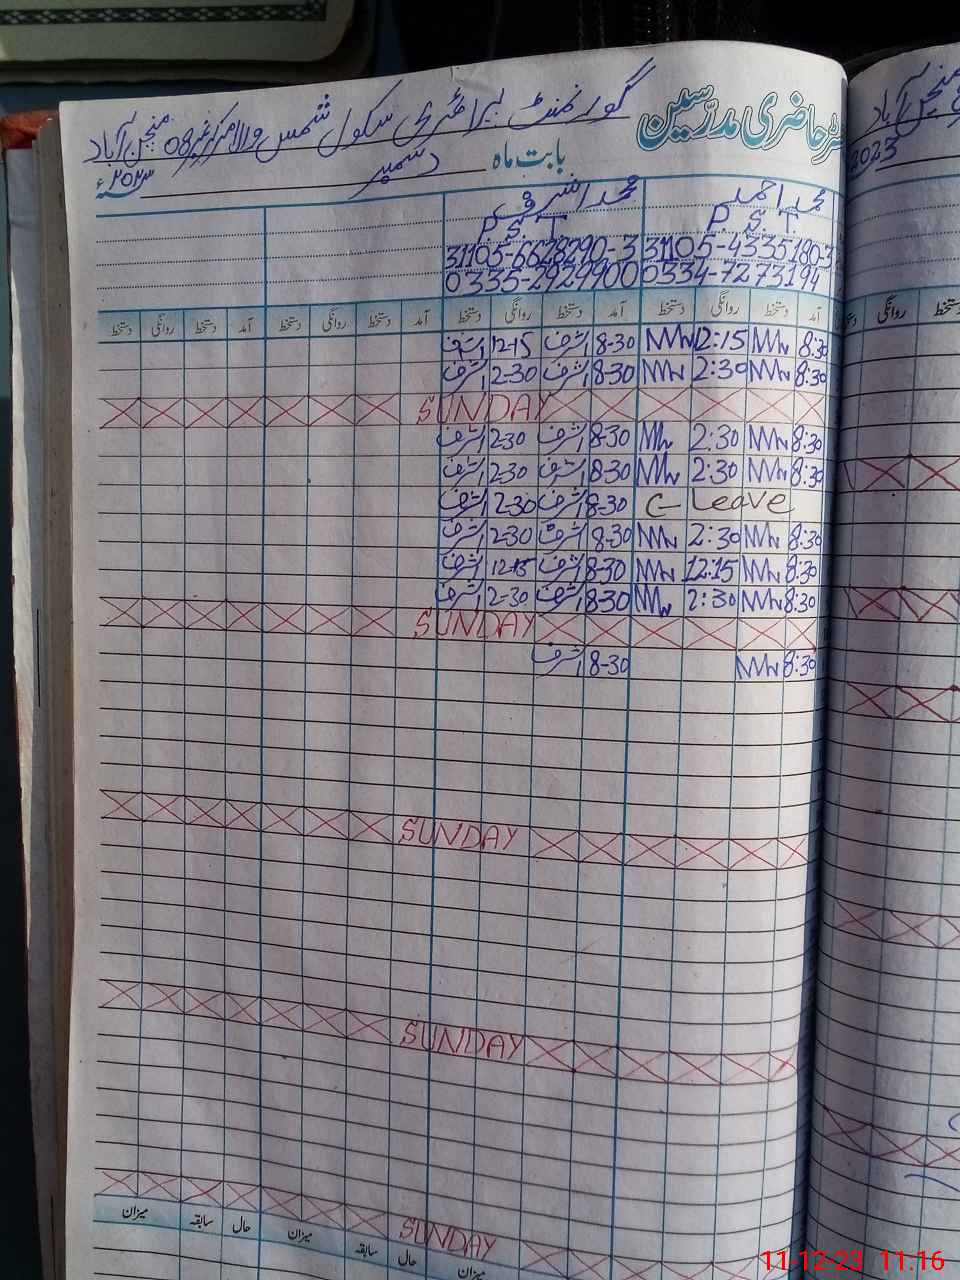 حاضری مدرّسین
گورنمنٹ پرائمری سکول شمس والا مرکز نمبر 08 منچن آباد
بابت ماہ دسمبر ۲۰۲۳ سنہٴ
محمد احمد محمد اشرف
P. S. T P S T
31105-6628290-3 31105-4335180-3
0335-2929900 0334-7273194
آمد دستخط روانگی دستخط آمد دستخط روانگی دستخط آمد دستخط روانگی دستخط آمد دستخط روانگی دستخط
8:30 12:15 8-30 اشرف 12-15 اشرف
8:30 2:30 8-30 اشرف 2-30 اشرف
SUNDAY
8:30 2:30 8-30 اشرف 2-30 اشرف
8:30 2:30 8-30 اشرف 2-30 اشرف
C-Leave 8-30 اشرف 2-30 اشرف
8:30 2:30 8-30 اشرف 2-30 اشرف
8:30 12:15 8-30 اشرف 12-15 اشرف
8:30 2:30 8-30 اشرف 2-30 اشرف
SUNDAY
8:30 8-30 اشرف
SUNDAY
SUNDAY
SUNDAY
میزان سابقہ حال میزان سابقہ حال میزان
منچن آباد
2023
روانگی
11-12-23 11.16